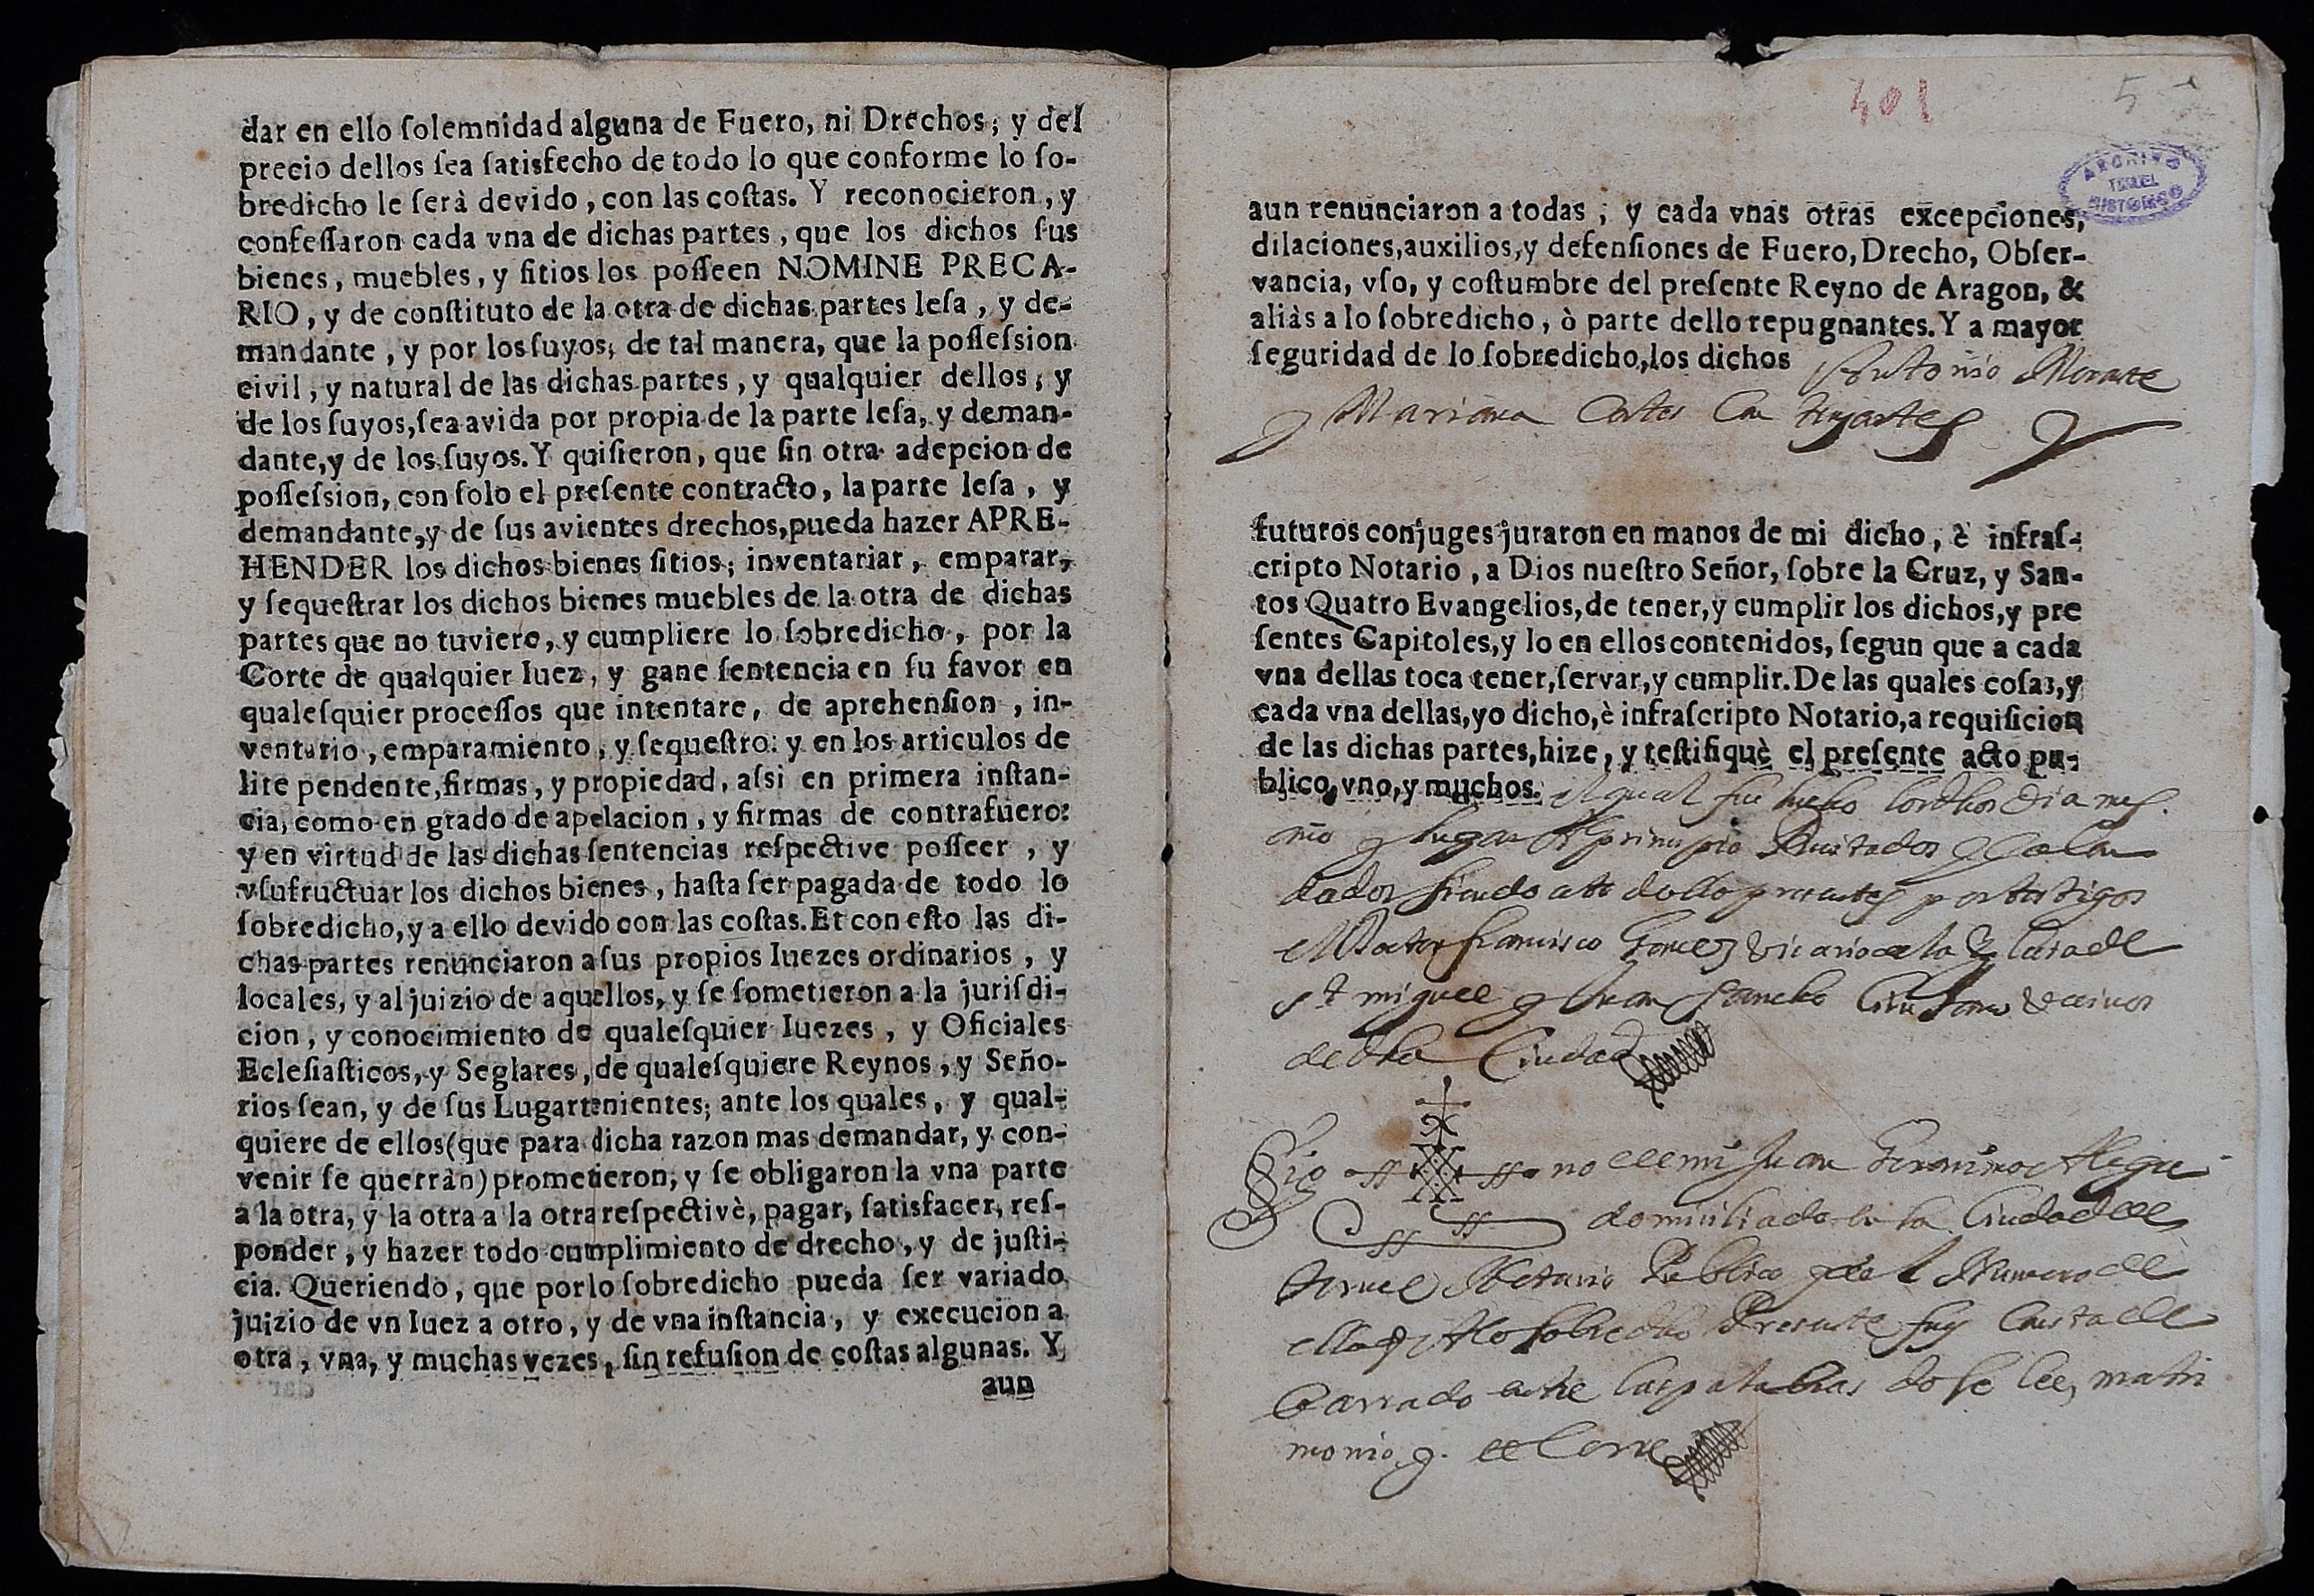 dar en ello ſolemnidad alguna de Fuero, ni Drechos; y del
precio dellos ſea ſatisfecho de todo lo que conforme lo ſo-
bredicho le ſerà devido, con las coſtas. Y reconocieron, y
confeſſaron cada vna de dichas partes, que los dichos ſus
bienes, muebles, y ſitios los poſſeen NOMINE PRECA-
RIO, y de conſtituto de la otra de dichas partes leſa, y de-
mandante, y por los ſuyos; de tal manera, que la poſſeſsion
civil, y natural de las dichas partes, y qualquier dellos, y
de los ſuyos, ſea avida por propia de la parte leſa, y deman-
dante, y de los ſuyos. Y quiſieron, que ſin otra adepcion de
poſſeſsion, con ſolo el preſente contracto, la parte leſa, y
demandante, y de ſus avientes drechos, pueda hazer APRE-
HENDER los dichos bienes ſitios; inventariar, emparar,
y ſequeſtrar los dichos bienes muebles de la otra de dichas
partes que no tuviere, y cumpliere lo ſobredicho, por la
Corte de qualquier Iuez, y gane ſentencia en ſu favor en
qualeſquier proceſſos que intentare, de aprehenſion, in-
ventario, emparamiento, y ſequeſtro: y en los articulos de
lite pendente, firmas, y propiedad, aſsi en primera inſtan-
cia, como en grado de apelacion, y firmas de contrafuero:
y en virtud de las dichas ſentencias reſpective poſſeer, y
vſufructuar los dichos bienes, haſta ſer pagada de todo lo
ſobredicho, y a ello devido con las coſtas. Et con eſto las di-
chas partes renunciaron a ſus propios Iuezes ordinarios, y
locales, y al juizio de aquellos, y ſe ſometieron a la juriſdi-
cion, y conocimiento de qualeſquier Iuezes, y Oficiales
Ecleſiaſticos, y Seglares, de qualeſquiere Reynos, y Seño-
rios ſean, y de ſus Lugartenientes; ante los quales, y qual-
quiere de ellos (que para dicha razon mas demandar, y con-
venir ſe querràn) prometieron, y ſe obligaron la vna parte
a la otra, y la otra a la otra reſpectivè, pagar, ſatisfacer, reſ-
ponder, y hazer todo cumplimiento de drecho, y de juſti-
cia. Queriendo, que por lo ſobredicho pueda ſer variado
juizio de vn Iuez a otro, y de vna inſtancia, y execucion a
otra, vna, y muchas vezes, ſin refuſion de coſtas algunas. Y
aun
401 5
ARCHIVO
TERUEL
HISTORICO
aun renunciaron a todas, y cada vnas otras excepciones,
dilaciones, auxilios, y defenſiones de Fuero, Drecho, Obſer-
vancia, vſo, y coſtumbre del preſente Reyno de Aragon, &
aliàs a lo ſobredicho, ò parte dello repugnantes. Y a mayor
ſeguridad de lo ſobredicho, los dichos Antonio
y Mariana Cortes
futuros conjuges juraron en manos de mi dicho, è infraſ-
cripto Notario, a Dios nueſtro Señor, ſobre la Cruz, y San-
tos Quatro Evangelios, de tener, y cumplir los dichos, y pre
ſentes Capitoles, y lo en ellos contenidos, ſegun que a cada
vna dellas toca tener, ſervar, y cumplir. De las quales coſas, y
cada vna dellas, yo dicho, è infraſcripto Notario, a requiſicion
de las dichas partes, hize, y teſtifiquè el preſente acto pu-
blico, vno, y muchos. el qual fue hecho dia mes
y lugar al principio
siendo a todo ello presentes por testigos
el Doctor Francisco vicario de la
St miguel y Juan Sancho vecinos
de dha Ciudad
Sig no de mi Juan Geronimo
domiciliado en la Ciudad de
teruel Notario Publico y del Numero de
ella q a lo sobre dho Presente fuy consta de
Barrado entre las palabras do se lee, matri
monio, y.